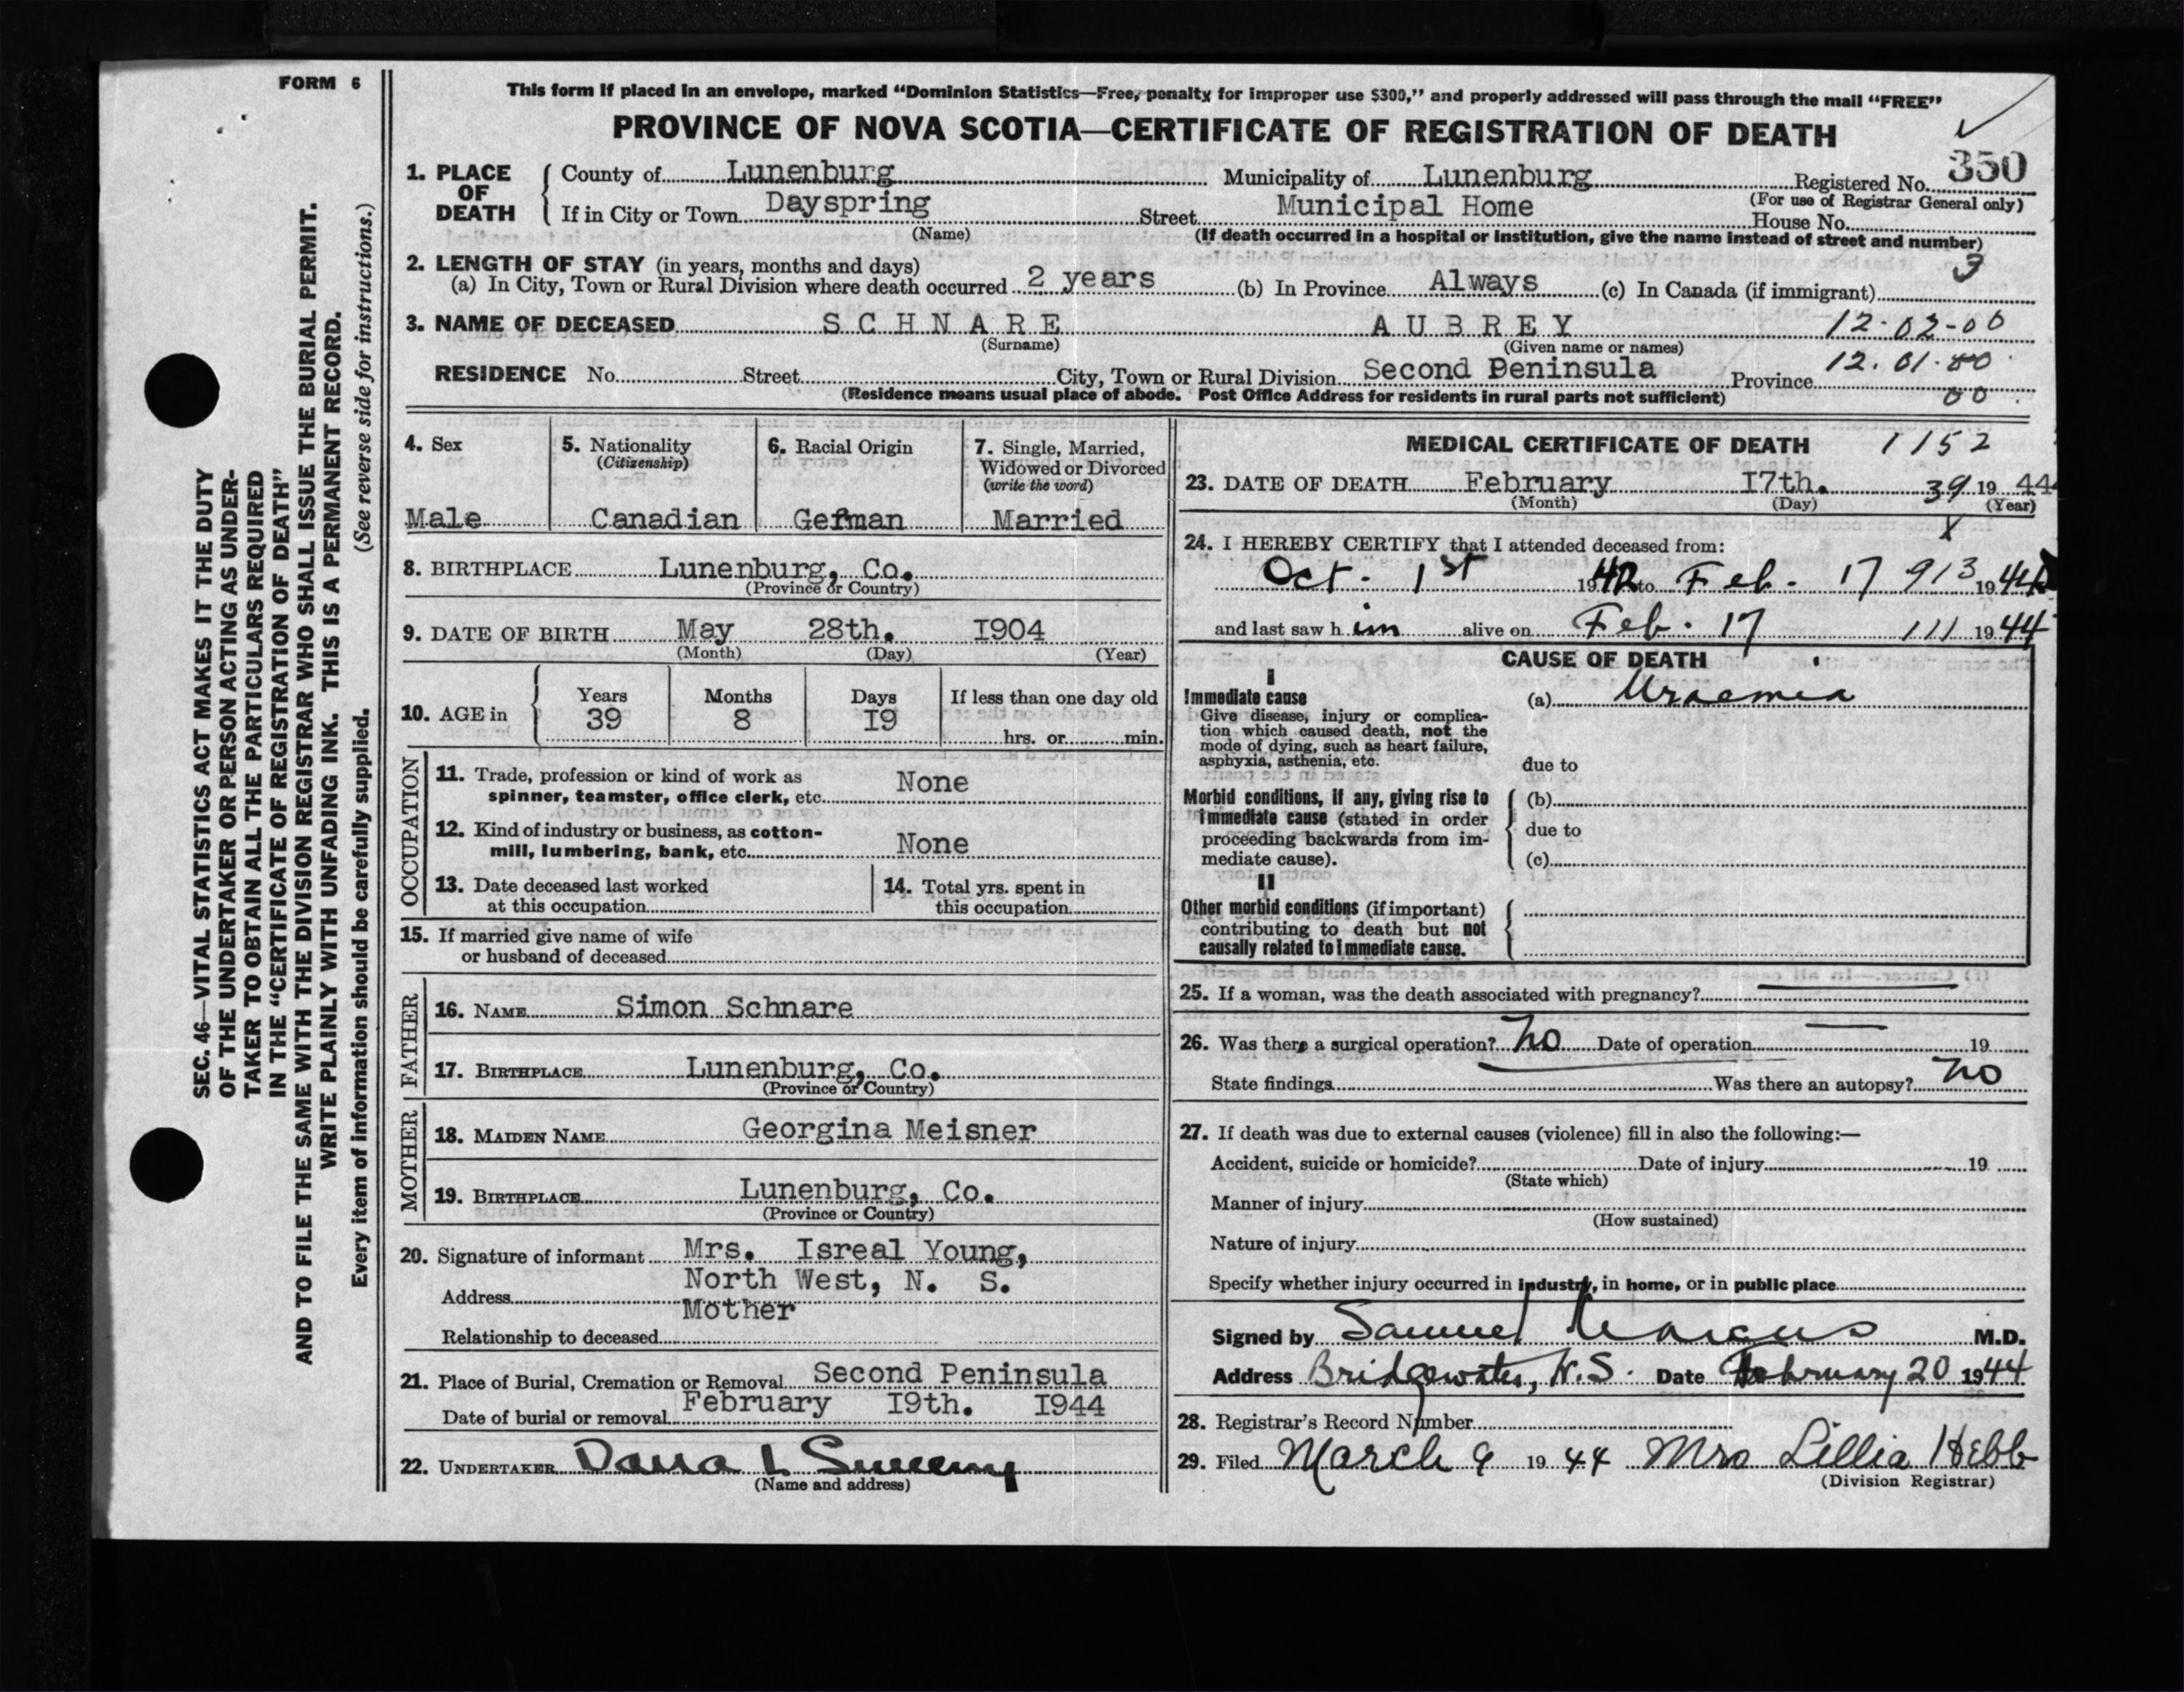 FORM 6
This form if placed in an envelope, marked “Dominion Statistics—Free, penalty for improper use $300,” and properly addressed will pass through the mail “FREE”
PROVINCE OF NOVA SCOTIA—CERTIFICATE OF REGISTRATION OF DEATH
1. PLACE OF DEATH County of Lunenburg Municipality of Lunenburg Registered No. 350
(For use of Registrar General only)
If in City or Town Dayspring Street Municipal Home House No.
(Name) (If death occurred in a hospital or institution, give the name instead of street and number)
3
2. LENGTH OF STAY (in years, months and days)
(a) In City, Town or Rural Division where death occurred 2 years (b) In Province Always (c) In Canada (if immigrant)
3. NAME OF DECEASED SCHNARE AUBREY 12-02-00
(Surname) (Given name or names)
12.01.00
RESIDENCE No. Street City, Town or Rural Division Second Peninsula Province
(Residence means usual place of abode. Post Office Address for residents in rural parts not sufficient) 00
4. Sex 5. Nationality (Citizenship) 6. Racial Origin 7. Single, Married, Widowed or Divorced (write the word)
Male Canadian German Married
8. BIRTHPLACE Lunenburg, Co.
(Province or Country)
9. DATE OF BIRTH May 28th. 1904
(Month) (Day) (Year)
10. AGE in Years Months Days If less than one day old
39 8 I9 hrs. or min.
OCCUPATION
11. Trade, profession or kind of work as
spinner, teamster, office clerk, etc. None
12. Kind of industry or business, as cotton-
mill, lumbering, bank, etc. None
13. Date deceased last worked
at this occupation
14. Total yrs. spent in
this occupation
15. If married give name of wife
or husband of deceased
FATHER
16. NAME Simon Schnare
17. BIRTHPLACE Lunenburg, Co.
(Province or Country)
MOTHER
18. MAIDEN NAME Georgina Meisner
19. BIRTHPLACE Lunenburg, Co.
(Province or Country)
20. Signature of informant Mrs. Isreal Young,
Address North West, N. S.
Relationship to deceased Mother
21. Place of Burial, Cremation or Removal Second Peninsula
Date of burial or removal February I9th. I944
22. UNDERTAKER Dana L Sweeny
(Name and address)
MEDICAL CERTIFICATE OF DEATH 1152
23. DATE OF DEATH February I7th. 39 19 44
(Month) (Day) (Year)
X
24. I HEREBY CERTIFY that I attended deceased from:
Oct. 1st 1942 to Feb. 17 913 1944
and last saw h im alive on Feb. 17 111 1944
CAUSE OF DEATH
I
Immediate cause (a) Uraemia
Give disease, injury or complica-
tion which caused death, not the
mode of dying, such as heart failure,
asphyxia, asthenia, etc. due to
Morbid conditions, if any, giving rise to (b)
immediate cause (stated in order
proceeding backwards from im- due to
mediate cause). (c)
II
Other morbid conditions (if important)
contributing to death but not
causally related to immediate cause.
25. If a woman, was the death associated with pregnancy?
26. Was there a surgical operation? No Date of operation 19
State findings Was there an autopsy? No
27. If death was due to external causes (violence) fill in also the following:—
Accident, suicide or homicide? Date of injury 19
(State which)
Manner of injury
(How sustained)
Nature of injury
Specify whether injury occurred in industry, in home, or in public place
Signed by Samuel Marcus M.D.
Address Bridgewater, N.S. Date February 20 1944
28. Registrar's Record Number
29. Filed March 9 19 44 Mrs Lillia Hebb
(Division Registrar)
SEC. 46—VITAL STATISTICS ACT MAKES IT THE DUTY
OF THE UNDERTAKER OR PERSON ACTING AS UNDER-
TAKER TO OBTAIN ALL THE PARTICULARS REQUIRED
IN THE “CERTIFICATE OF REGISTRATION OF DEATH”
AND TO FILE THE SAME WITH THE DIVISION REGISTRAR WHO SHALL ISSUE THE BURIAL PERMIT.
WRITE PLAINLY WITH UNFADING INK. THIS IS A PERMANENT RECORD.
Every item of information should be carefully supplied. (See reverse side for instructions.)